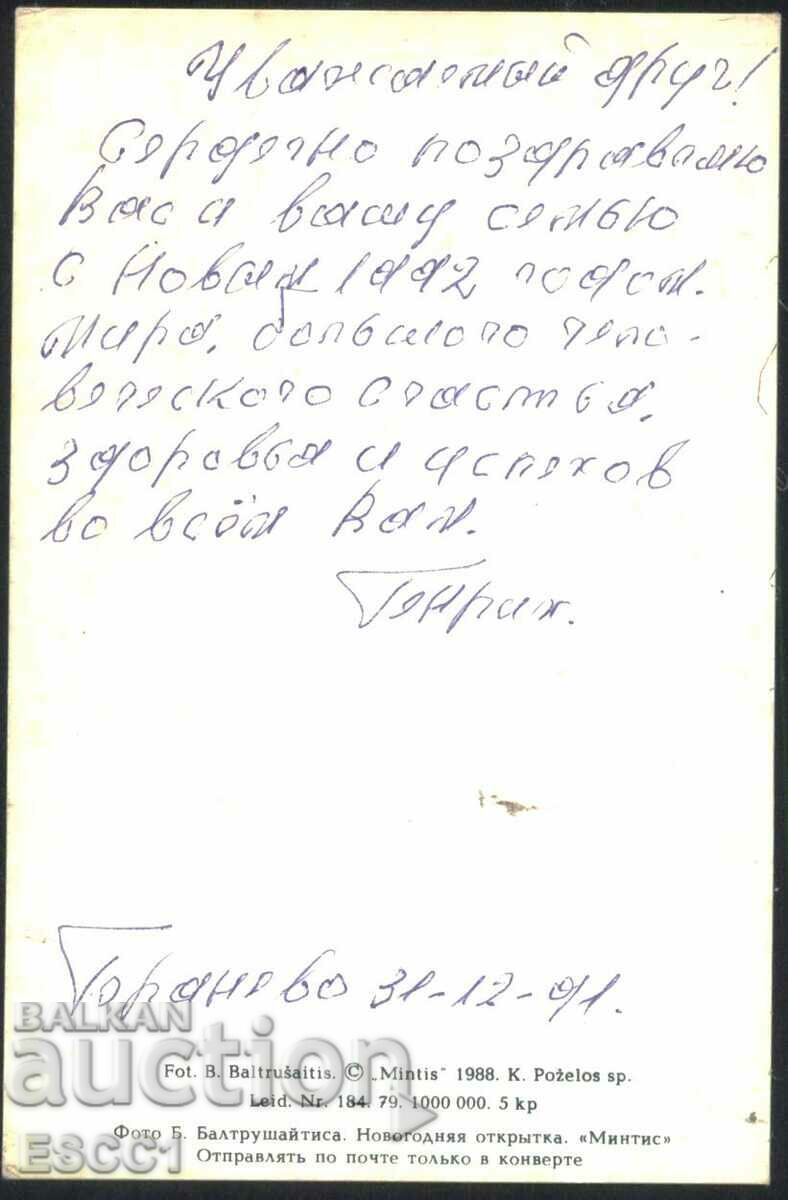 Уважаемый друг!
Сердечно поздравляю
Вас и вашу семью
с Новым 1992 годом.
Мира, большого чело-
веческого счастья,
здоровья и успехов
во всём Вам.
Генрих.
31-12-91.
BALKAN
auction
ESCC1
Fot. B. Baltrušaitis. © „Mintis" 1988. K. Poželos sp.
Leid. Nr. 184. 79. 1000 000. 5 kp
Фото Б. Балтрушайтиса. Новогодняя открытка. «Минтис»
Отправлять по почте только в конверте